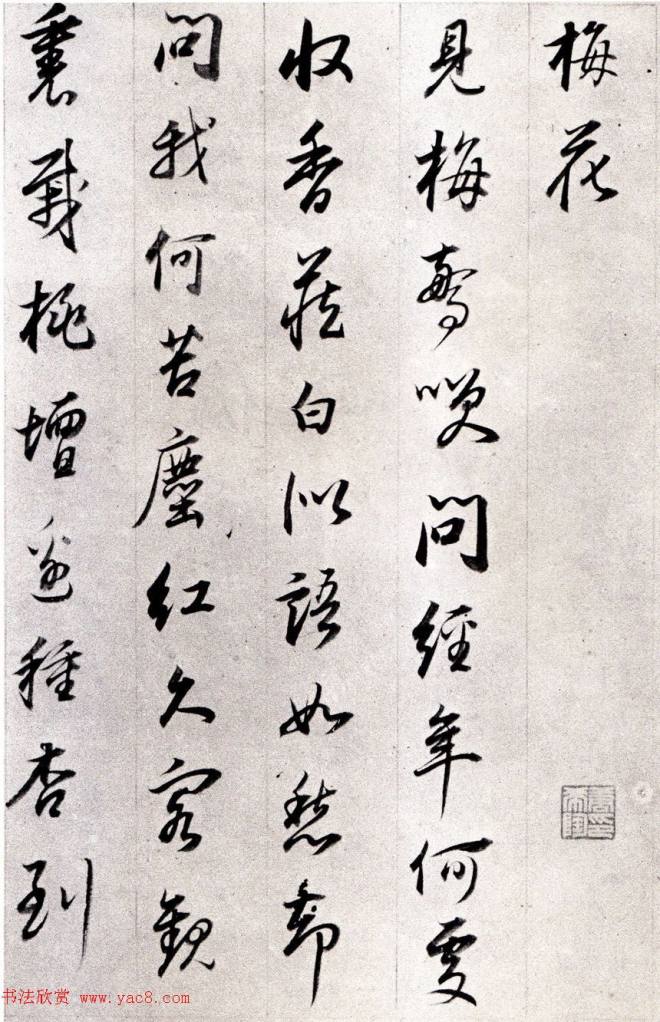 梅花
見梅驚咲問經年何處
收香藏白似語如愁却
問我何苦塵紅久客觀
裏栽桃壇邊種杏到
书法欣赏 www.yac8.com